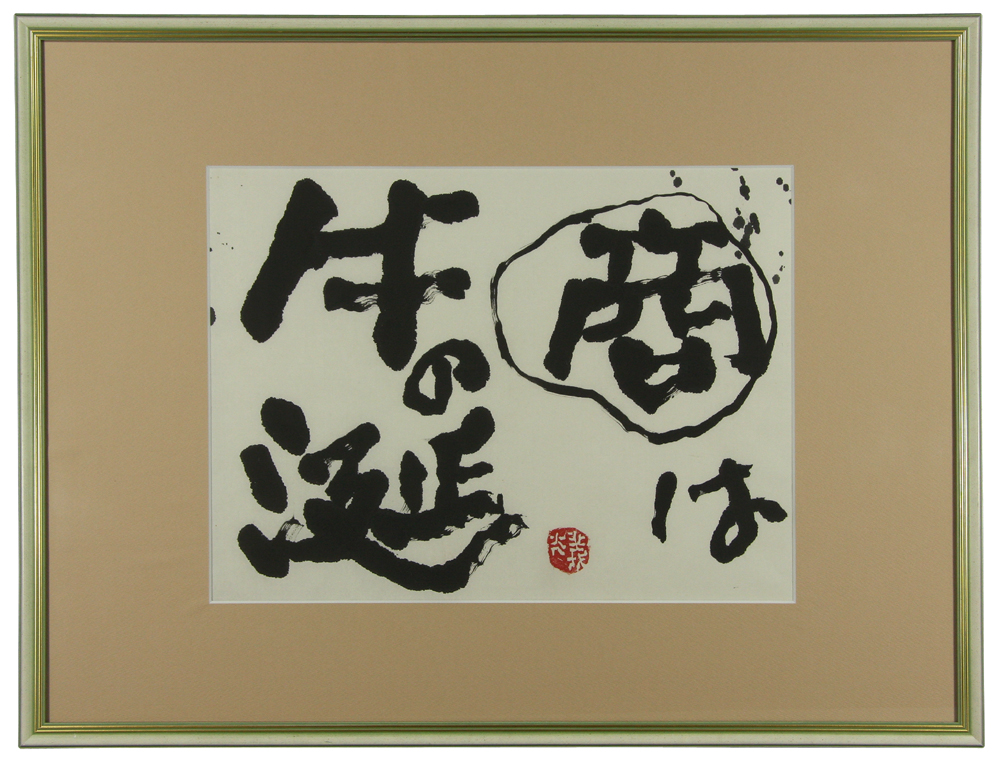 商は
牛の涎